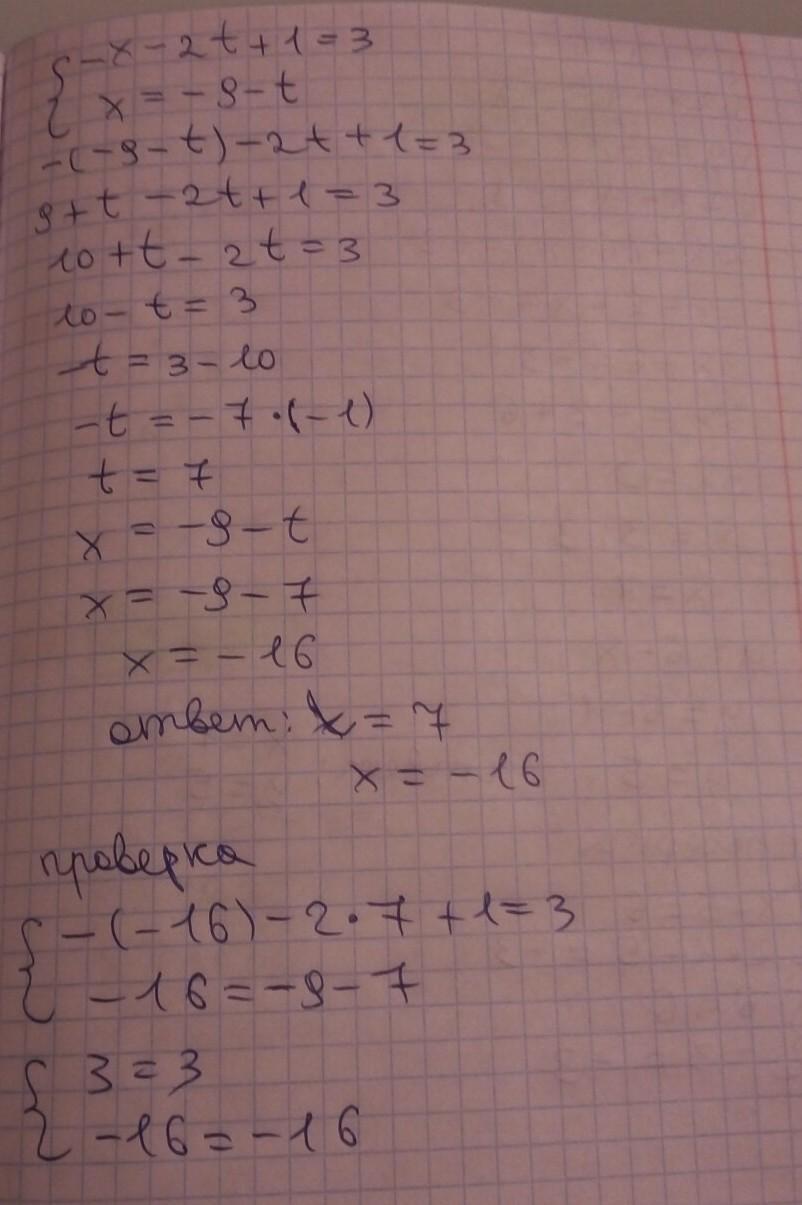 { -x - 2t + 1 = 3
x = -9 - t
-(-9 - t) - 2t + 1 = 3
9 + t - 2t + 1 = 3
10 + t - 2t = 3
10 - t = 3
-t = 3 - 10
-t = -7 · (-1)
t = 7
x = -9 - t
x = -9 - 7
x = -16
ответ: t = 7
x = -16
проверка
{ -(-16) - 2 · 7 + 1 = 3
-16 = -9 - 7
{ 3 = 3
-16 = -16